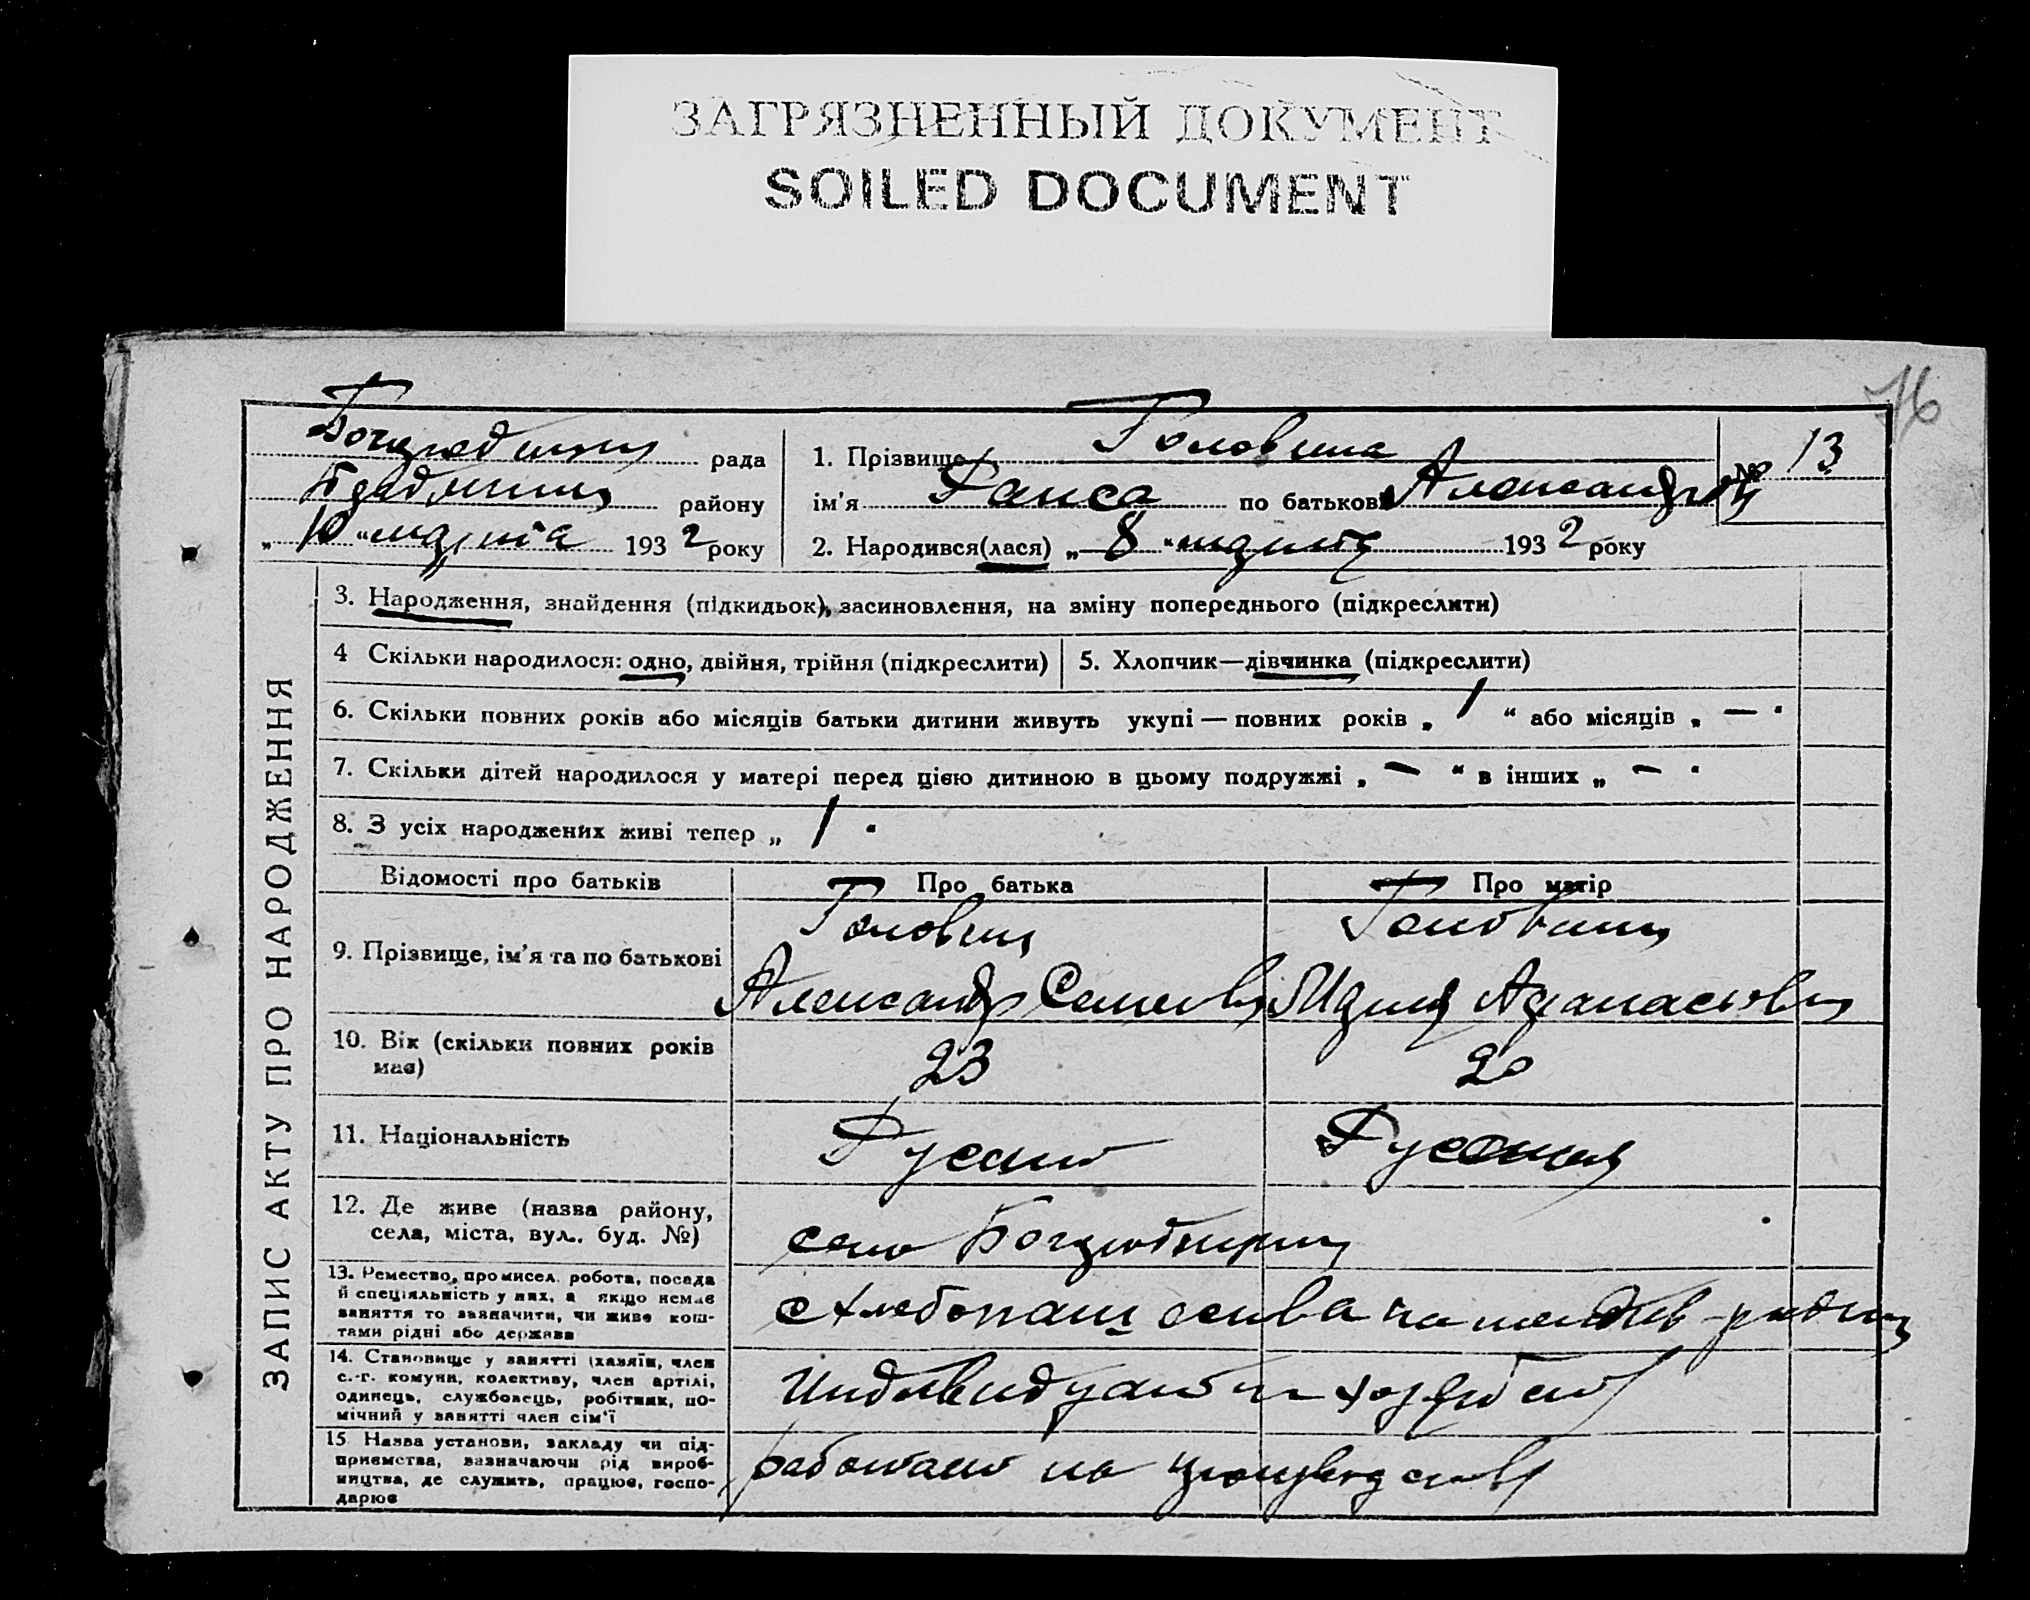 ЗАГРЯЗНЕННЫЙ ДОКУМЕНТ
SOILED DOCUMENT
рада
району
„ 10 “ марта 1932 року
1. Прізвище Головина
ім'я Раиса по батькові
№ 13
2. Народився(лася) „ 8 “ марта 1932 року
ЗАПИС АКТУ ПРО НАРОДЖЕННЯ
3. Народження, знайдення (підкидьок), засиновлення, на зміну попереднього (підкреслити)
4 Скільки народилося: одно, двійня, трійня (підкреслити)
5. Хлопчик—дівчинка (підкреслити)
6. Скільки повних років або місяців батьки дитини живуть укупі — повних років „ 1 “ або місяців „ — "
7. Скільки дітей народилося у матері перед цією дитиною в цьому подружжі „ — “ в інших „ — "
8. З усіх народжених живі тепер „ 1 "
Відомості про батьків
Про батька
Про матір
9. Прізвище, ім'я та по батькові
Головин
Александр
10. Вік (скільки повних років має)
23
20
11. Національність
12. Де живе (назва району,
села, міста, вул., буд. №)
село
13. Ремество, промисел, робота, посада
й спеціяльність у них, а якщо немає
заняття то зазначити, чи живе кош-
тами рідні або держави
14. Становище у занятті (хазяїн, член
с.-г. комуни, колективу, член артілі,
одинець, службовець, робітник, по-
мічний у занятті член сім'ї
15 Назва установи, закладу чи під-
приємства, зазначаючи рід вироб-
ництва, де служить, працює, госпо-
дарює
работает на